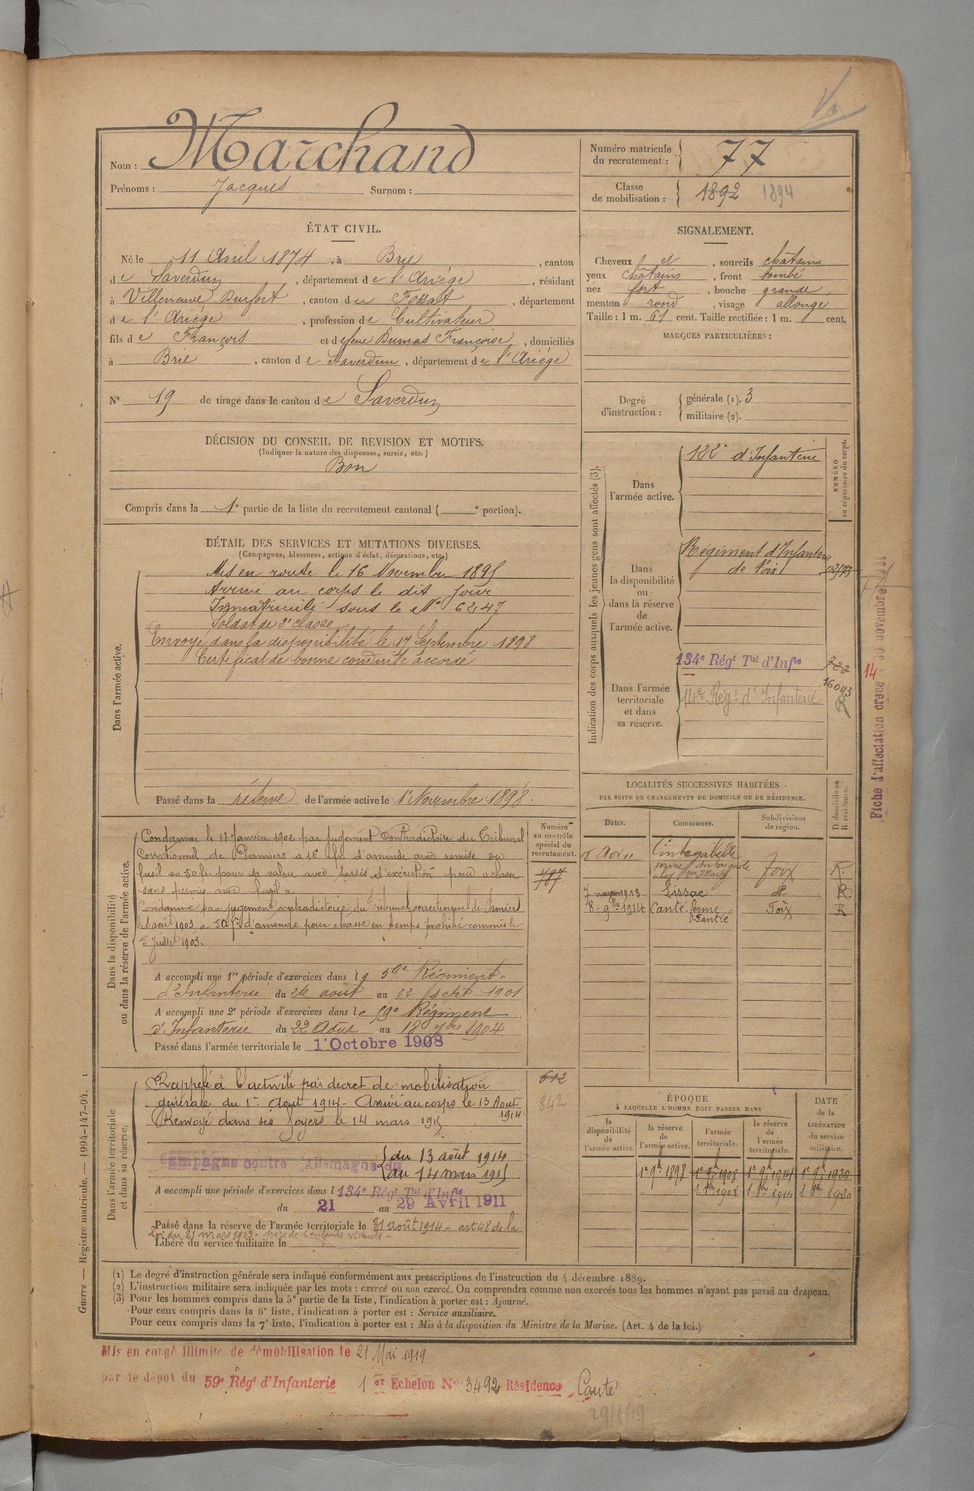 Nom : Marchand
Prénoms : Jacques Surnom :
Numéro matricule du recrutement : 77
Classe de mobilisation : 1892 1894
ÉTAT CIVIL.
Né le 11 Avril 1874, à Brie, canton
de Saverdun, département de l'Ariège, résidant
à Villeneuve Durfort, canton de Fossat, département
de l'Ariège, profession de Cultivateur
fils de François et de feue Dumas Françoise, domiciliés
à Brie, canton de Saverdun, département de l'Ariège
N° 19 de tirage dans le canton de Saverdun
SIGNALEMENT.
Cheveux et, sourcils châtains
yeux châtains, front bombé
nez fort, bouche grande
menton rond, visage allongé
Taille : 1 m. 61 cent. Taille rectifiée : 1 m. cent.
MARQUES PARTICULIÈRES :
Degré d'instruction : générale (1). 3
militaire (2).
DÉCISION DU CONSEIL DE REVISION ET MOTIFS.
(Indiquer la nature des dispenses, sursis, etc.)
Bon
Compris dans la 1e partie de la liste du recrutement cantonal ( e portion).
DÉTAIL DES SERVICES ET MUTATIONS DIVERSES.
(Campagnes, blessures, actions d'éclat, décorations, etc.)
Dans l'armée active.
Mis en route le 16 Novembre 1895
Arrivé au corps le dit jour
Immatriculé sous le N° 6247
Soldat de 2e classe
Envoyé dans la disponibilité le 17 Septembre 1898
Certificat de bonne conduite accordé
Passé dans la réserve de l'armée active le 1r Novembre 1898.
Indication des corps auxquels les jeunes gens sont affectés (3).
NUMÉRO au répertoire du corps.
Dans l'armée active.
122e d'Infanterie
Dans la disponibilité ou dans la réserve de l'armée active.
Régiment d'Infanterie
de Foix
134e Régt Tal d'Infie
Dans l'armée territoriale et dans sa réserve.
Régt d'Infanterie
16043
R
14
Fiche d'affectation créée novembre
Dans la disponibilité ou dans la réserve de l'armée active.
Numéro au contrôle spécial du recrutement.
Condamné le 13 Janvier 1902 par jugement Contradictoire du Tribunal
Correctionnel de Pamiers à 16 fr. d'amende avec remise du
fusil ou 50 fr. pour sa valeur avec sursis d'exécution pour "chasse
sans permis avec fusil".
Condamné par jugement contradictoire du tribunal correctionnel de Pamiers
août 1903 à 50 fr. d'amende pour chasse en temps prohibé commis le
5 Juillet 1903.
A accompli une 1re période d'exercices dans le 59e Régiment
d'Infanterie du 26 août au 22 sept 1901
A accompli une 2e période d'exercices dans le 59e Régiment
d'Infanterie du 22 Août au 18 7bre 1904
Passé dans l'armée territoriale le 1r Octobre 1908
LOCALITÉS SUCCESSIVES HABITÉES
PAR SUITE DE CHANGEMENTS DE DOMICILE OU DE RÉSIDENCE.
Dates. Communes. Subdivisions de région. D domicile ou R résidence.
Cintegabelle Foix R
1913 Lissac d° R
8 - 9bre 1914 Canté ferme Foix R
Dans l'armée territoriale et dans sa réserve.
Rappelé à l'activité par décret de mobilisation
générale du 1er Août 1914 - Arrivé au corps le 13 Août
1914
Renvoyé dans ses foyers le 14 mars 1915
612
842
Campagne contre l'Allemagne du
du 13 août 1914
au 14 mars 1915
A accompli une période d'exercices dans l 134e Régt Tal d'Infie
du 21 au 29 Avril 1911
Passé dans la réserve de l'armée territoriale le 31 août 1914 - art 48 de la
loi du 21 mars 1905 - père de 6 enfants vivants -
Libéré du service militaire le
ÉPOQUE
À LAQUELLE L'HOMME DOIT PASSER DANS
la disponibilité de l'armée active.
la réserve de l'armée active.
l'armée territoriale.
la réserve de l'armée territoriale.
DATE de la LIBÉRATION du service militaire.
1r 9bre 1898 1r 9bre 1908 1r 9bre 1914 1r 9bre 1920
(1) Le degré d'instruction générale sera indiqué conformément aux prescriptions de l'instruction du 4 décembre 1889.
(2) L'instruction militaire sera indiquée par les mots : exercé ou non exercé. On comprendra comme non exercés tous les hommes n'ayant pas passé au drapeau.
(3) Pour les hommes compris dans la 5e partie de la liste, l'indication à porter est : Ajourné.
Pour ceux compris dans la 6e liste, l'indication à porter est : Service auxiliaire.
Pour ceux compris dans la 7e liste, l'indication à porter est : Mis à la disposition du Ministre de la Marine. (Art. 4 de la loi.)
Guerre — Registre matricule. — 1994-147-94.
Mis en congé illimité de démobilisation le 21 Mai 1919
par le dépôt du 59e Régt d'Infanterie 1er Echelon N° 3492 Résidence Canté